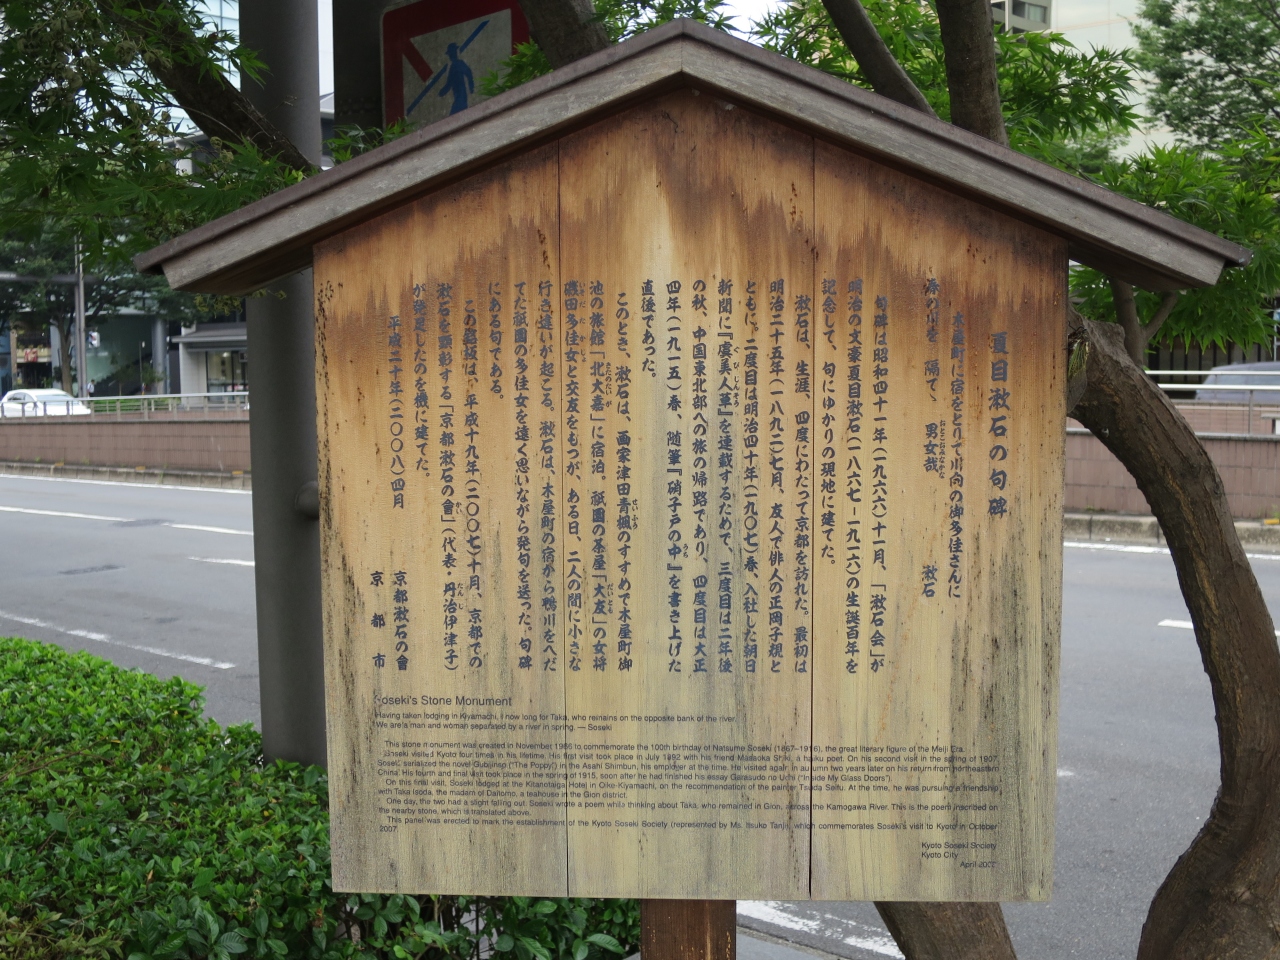 夏目漱石の句碑
木屋町に宿をとりて川向の御多佳さんに
春の川を 隔てゝ 男女哉 漱石
おとこおみなかな
句碑は昭和四十一年(一九六六)十一月、「漱石会」が
明治の文豪夏目漱石(一八六七-一九一六)の生誕百年を
記念して、句にゆかりの現地に建てた。
漱石は、生涯、四度にわたって京都を訪れた。最初は
明治二十五年(一八九二)七月、友人で俳人の正岡子規と
ともに。二度目は明治四十年(一九〇七)春、入社した朝日
新聞に『虞美人草』を連載するためで、三度目は二年後
ぐびじんそう
の秋、中国東北部への旅の帰路であり、四度目は大正
四年(一九一五)春、随筆『硝子戸の中』を書き上げた
うち
直後であった。
このとき、漱石は、画家津田青楓のすすめで木屋町御
せいふう
池の旅館「北大嘉」に宿泊。祇園の茶屋「大友」の女将
きたのたいが
だいとも
磯田多佳女と交友をもつが、ある日、二人の間に小さな
いそだたかじょ
行き違いが起こる。漱石は、木屋町の宿から鴨川をへだ
てた祇園の多佳女を遠く思いながら発句を送った。句碑
にある句である。
この駒札は、平成十九年(二〇〇七)十月、京都での
漱石を顕彰する「京都漱石の會」(代表・丹治伊津子)
かい
たんじ
が発足したのを機に建てた。
平成二十年(二〇〇八)四月
京都漱石の會
京都市
Soseki's Stone Monument
Having taken lodging in Kiyamachi, I now long for Taka, who remains on the opposite bank of the river.
We are a man and woman separated by a river in spring. — Soseki
This stone monument was created in November 1966 to commemorate the 100th birthday of Natsume Soseki (1867–1916), the great literary figure of the Meiji Era.
Soseki visited Kyoto four times in his lifetime. His first visit took place in July 1892 with his friend Masaoka Shiki, a haiku poet. On his second visit in the spring of 1907,
Soseki serialized the novel Gubijinso ("The Poppy") in the Asahi Shimbun, his employer at the time. He visited again in autumn two years later on his return from northeastern
China. His fourth and final visit took place in the spring of 1915, soon after he had finished his essay Garasudo no Uchi ("Inside My Glass Doors").
On this final visit, Soseki lodged at the Kitanotaiga Hotel in Oike-Kiyamachi, on the recommendation of the painter Tsuda Seifu. At the time, he was pursuing a friendship
with Taka Isoda, the madam of Daitomo, a teahouse in the Gion district.
One day, the two had a slight falling out. Soseki wrote a poem while thinking about Taka, who remained in Gion, across the Kamogawa River. This is the poem inscribed on
the nearby stone, which is translated above.
This panel was erected to mark the establishment of the Kyoto Soseki Society (represented by Ms. Itsuko Tanji), which commemorates Soseki's visit to Kyoto in October
2007.
Kyoto Soseki Society
Kyoto City
April 2007